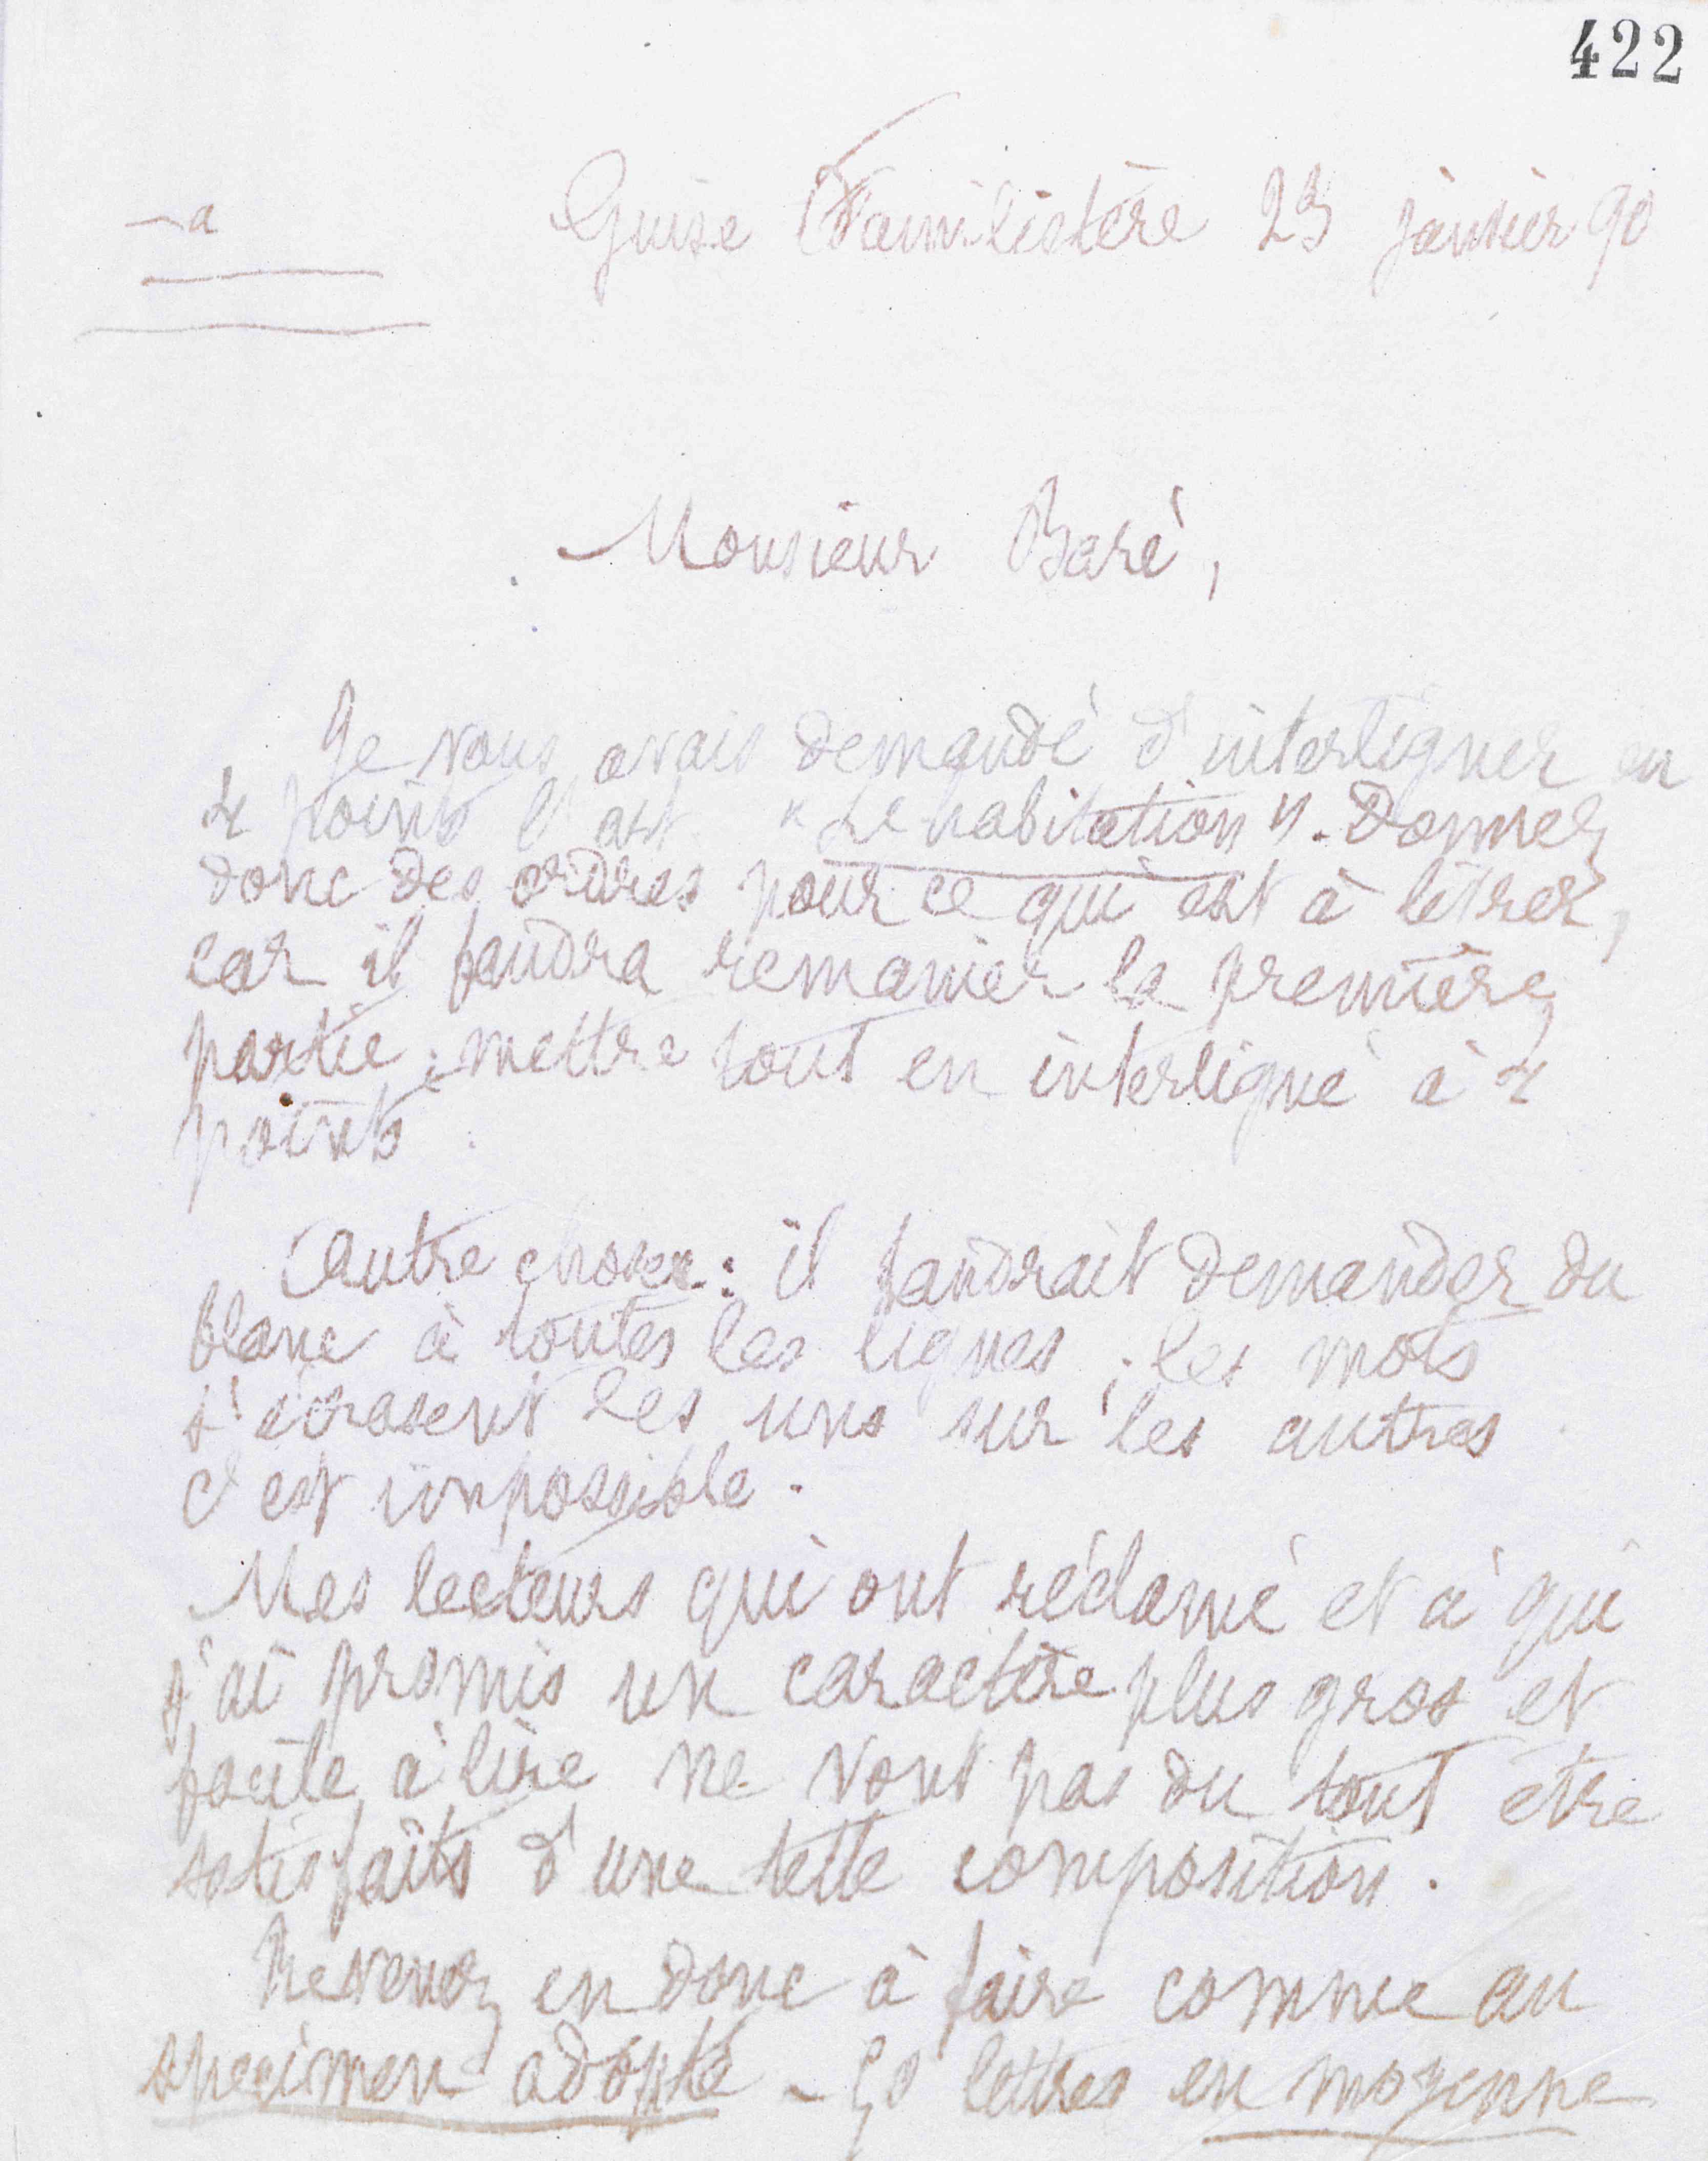 422
a
Guise Familistère 23 janvier 90
Monsieur Baré,
Je vous avais demandé d'interligner en
points l'art. "Le habitation". Donnez
donc des ordres pour ce qui est à titrer,
car il faudra remanier la première
partie, mettre tout en interligné à
points.
Autre chose : il faudrait demander du
blanc à toutes les lignes ; les mots
s'écrasent les uns sur les autres
c'est impossible.
Mes lecteurs qui ont réclamé et à qui
j'ai promis un caractère plus gros et
facile à lire ne vont pas du tout etre
satisfaits d'une telle composition.
Revenez en donc à faire comme au
specimen adopté - 50 lettres en moyenne